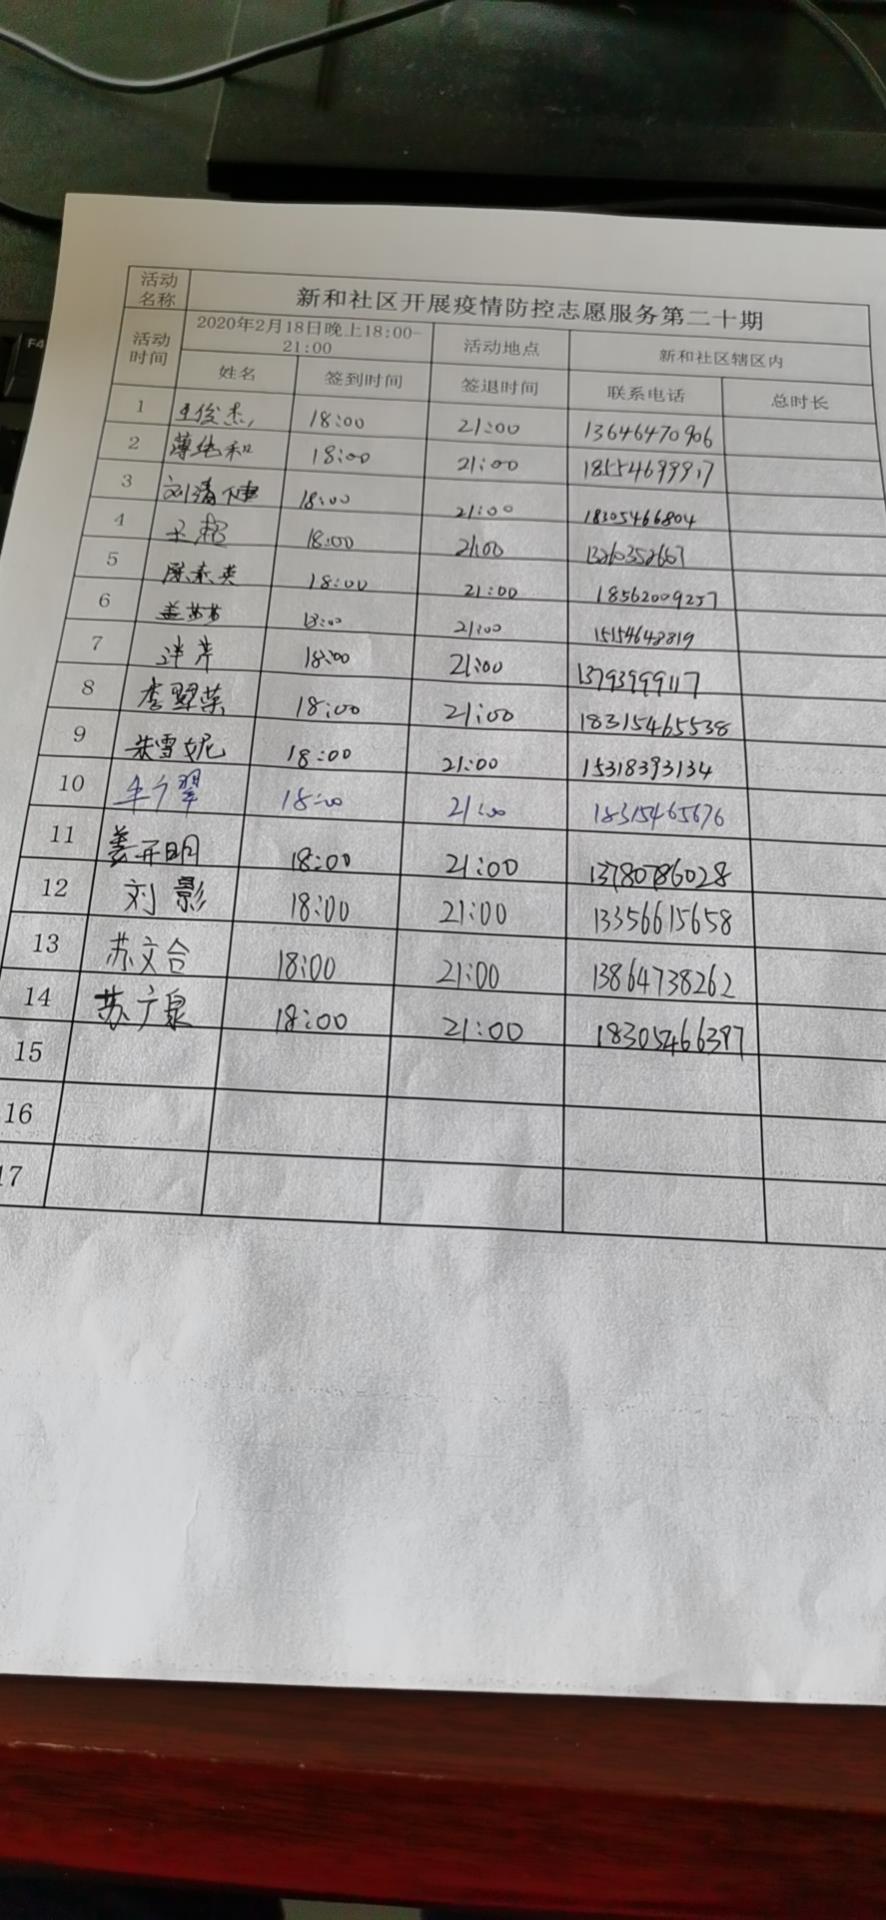 活动名称 新和社区开展疫情防控志愿服务第二十期
活动时间 2020年2月18日晚上18:00-21:00 活动地点 新和社区辖区内
姓名 签到时间 签退时间 联系电话 总时长
1 王俊杰 18:00 21:00 13646470906
2 薄纯和 18:00 21:00 18554699917
3 刘清健 18:00 21:00 18305466804
4 王超 18:00 21:00 13260352667
5 18:00 21:00 18562009257
6 盖苗苗 18:00 21:00 15154648819
7 洋芹 18:00 21:00 13793999117
8 李翠荣 18:00 21:00 18315465538
9 宋雪妮 18:00 21:00 15318393134
10 18:00 21:00 18315465676
11 姜开明 18:00 21:00 13780786028
12 刘影 18:00 21:00 13356615658
13 苏文合 18:00 21:00 13864738262
14 苏广泉 18:00 21:00 18305466397
15
16
17
F4